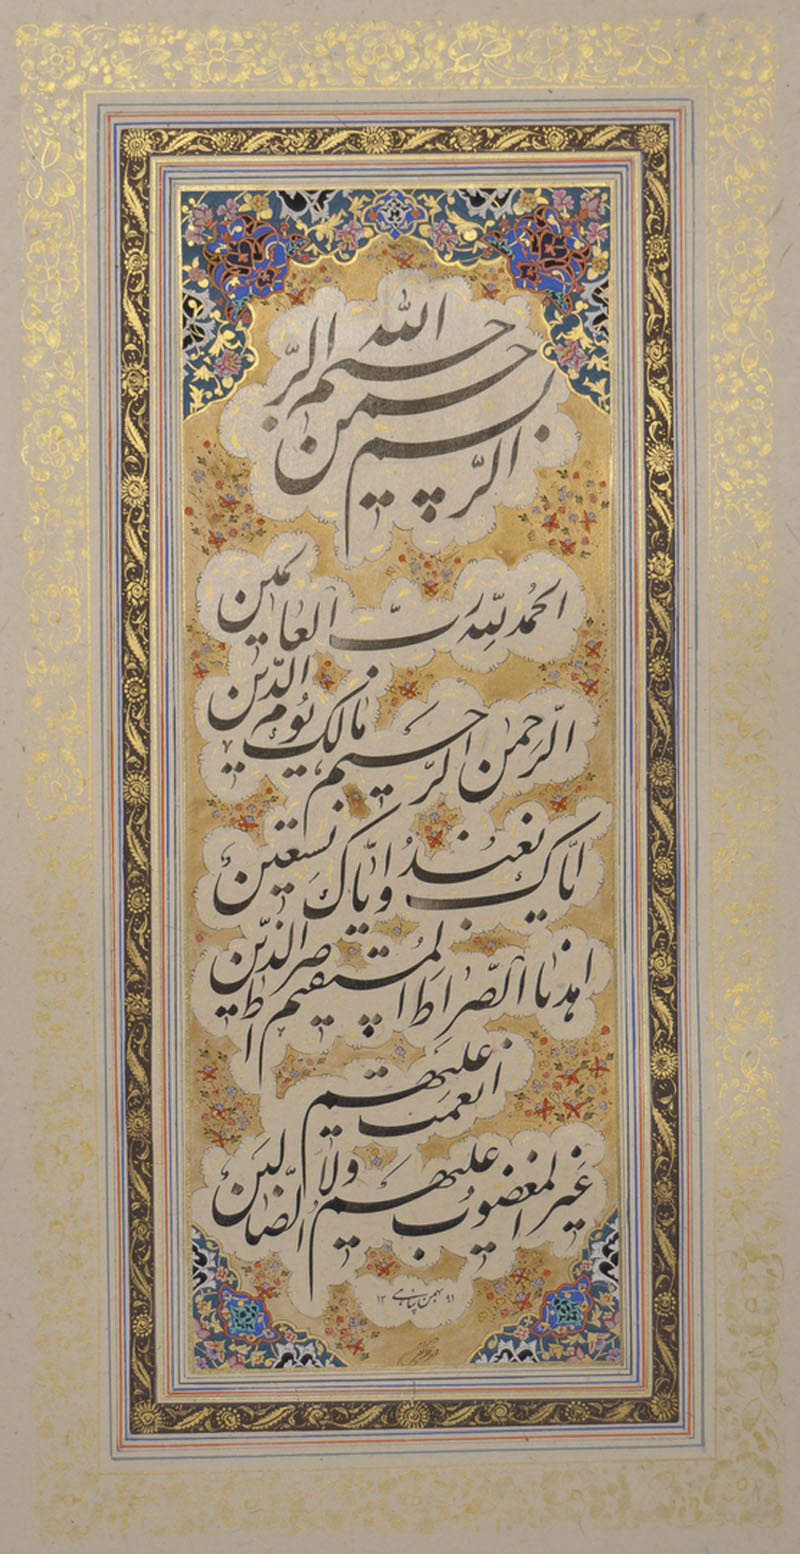 بسم الله الرّحمن الرّحیم
الحمُد لِلّه ربّ العالمین
الرّحمن الرّحیم مالک یَوم الدّین
ایّاک نعبدُ و ایّاکَ نستعین
اهدنا الصّراط المُستقیم صراط الذّین
انعمت علیهم
غَیر المغضوب علیهم ولا الضّالین
۹۱ بهمن پناهی ۱۳